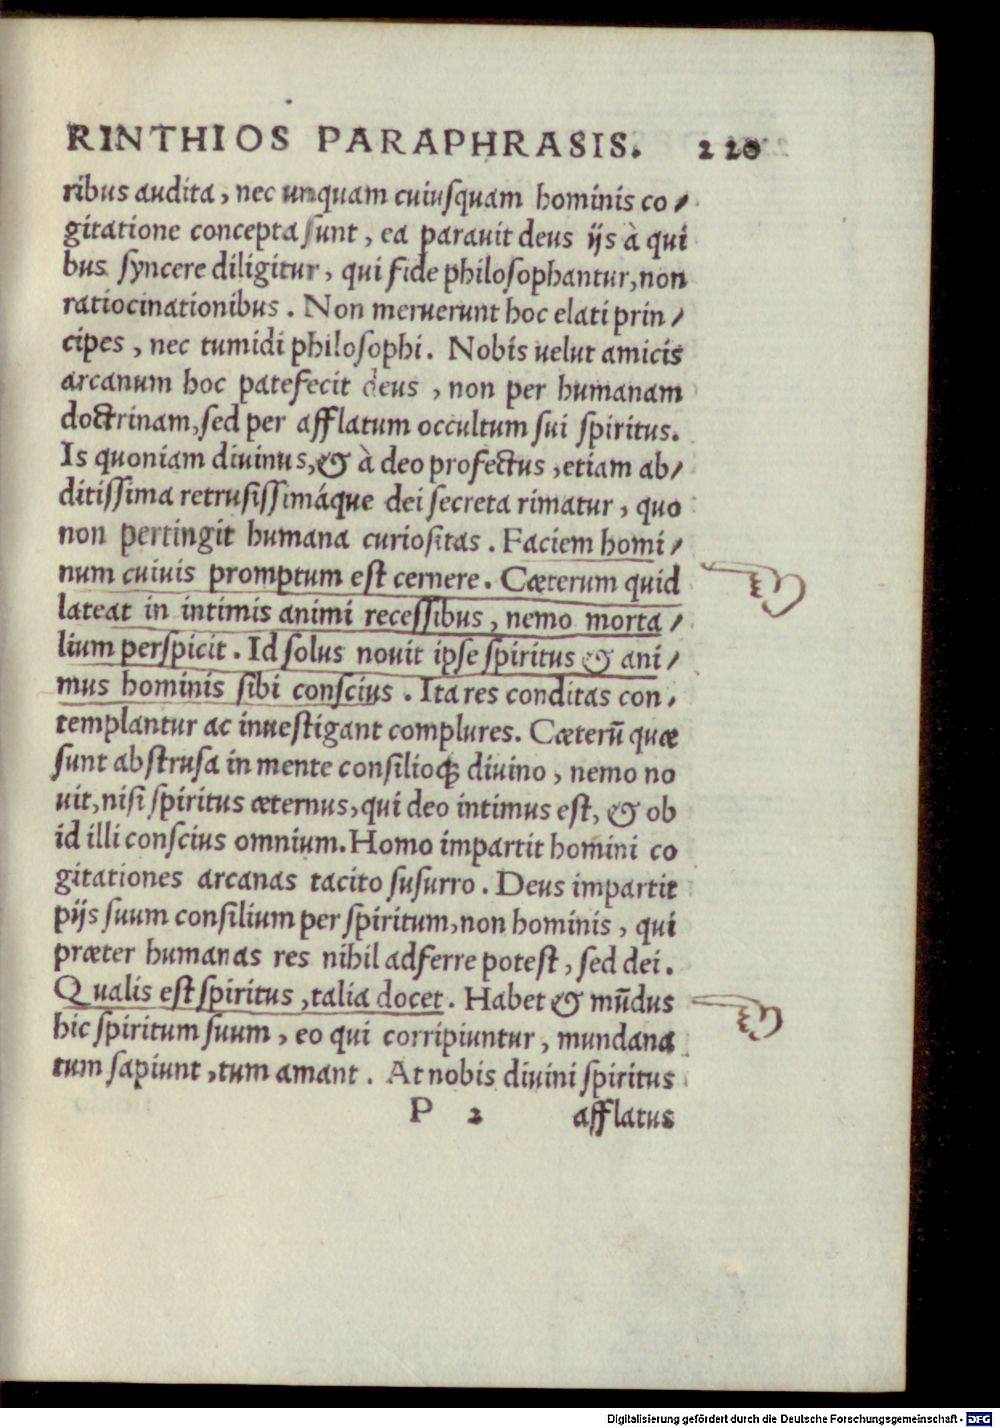 RINTHIOS PARAPHRASIS. 220
ribus audita, nec unquam cuiuſquam hominis co⸗
gitatione concepta ſunt, ea parauit deus ijs à qui
bus ſyncere diligitur, qui fide philoſophantur, non
ratiocinationibus. Non meruerunt hoc elati prin⸗
cipes, nec tumidi philoſophi. Nobis uelut amicis
arcanum hoc patefecit deus, non per humanam
doctrinam, ſed per afflatum occultum ſui ſpiritus.
Is quoniam diuinus, & à deo profectus, etiam ab⸗
ditiſſima retruſiſſimáque dei ſecreta rimatur, quo
non pertingit humana curioſitas. Faciem homi⸗
num cuiuis promptum eſt cernere. Cæterum quid
lateat in intimis animi receſſibus, nemo morta⸗
lium perſpicit. Id ſolus nouit ipſe ſpiritus & ani⸗
mus hominis ſibi conſcius. Ita res conditas con⸗
templantur ac inueſtigant complures. Cæterũ quæ
ſunt abſtruſa in mente conſilioq́; diuino, nemo no
uit, niſi ſpiritus æternus, qui deo intimus eſt, & ob
id illi conſcius omnium. Homo impartit homini co
gitationes arcanas tacito ſuſurro. Deus impartit
pijs ſuum conſilium per ſpiritum, non hominis, qui
præter humanas res nihil adferre poteſt, ſed dei.
Qualis eſt ſpiritus, talia docet. Habet & mũdus
hic ſpiritum ſuum, eo qui corripiuntur, mundana
tum ſapiunt, tum amant. At nobis diuini ſpiritus
P 2 afflatus
Digitalisierung gefördert durch die Deutsche Forschungsgemeinschaft - DFG